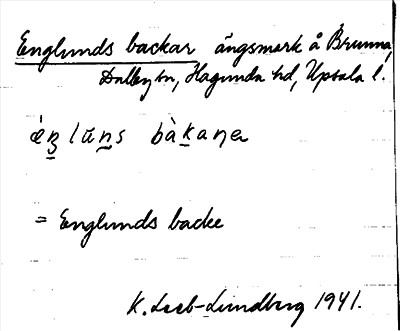 Englunds backar ängsmark å Brunna,
Dalby sn, Hagunda hd, Upsala l.
= Englunds backe
K. Leeb-Lundberg 1941.